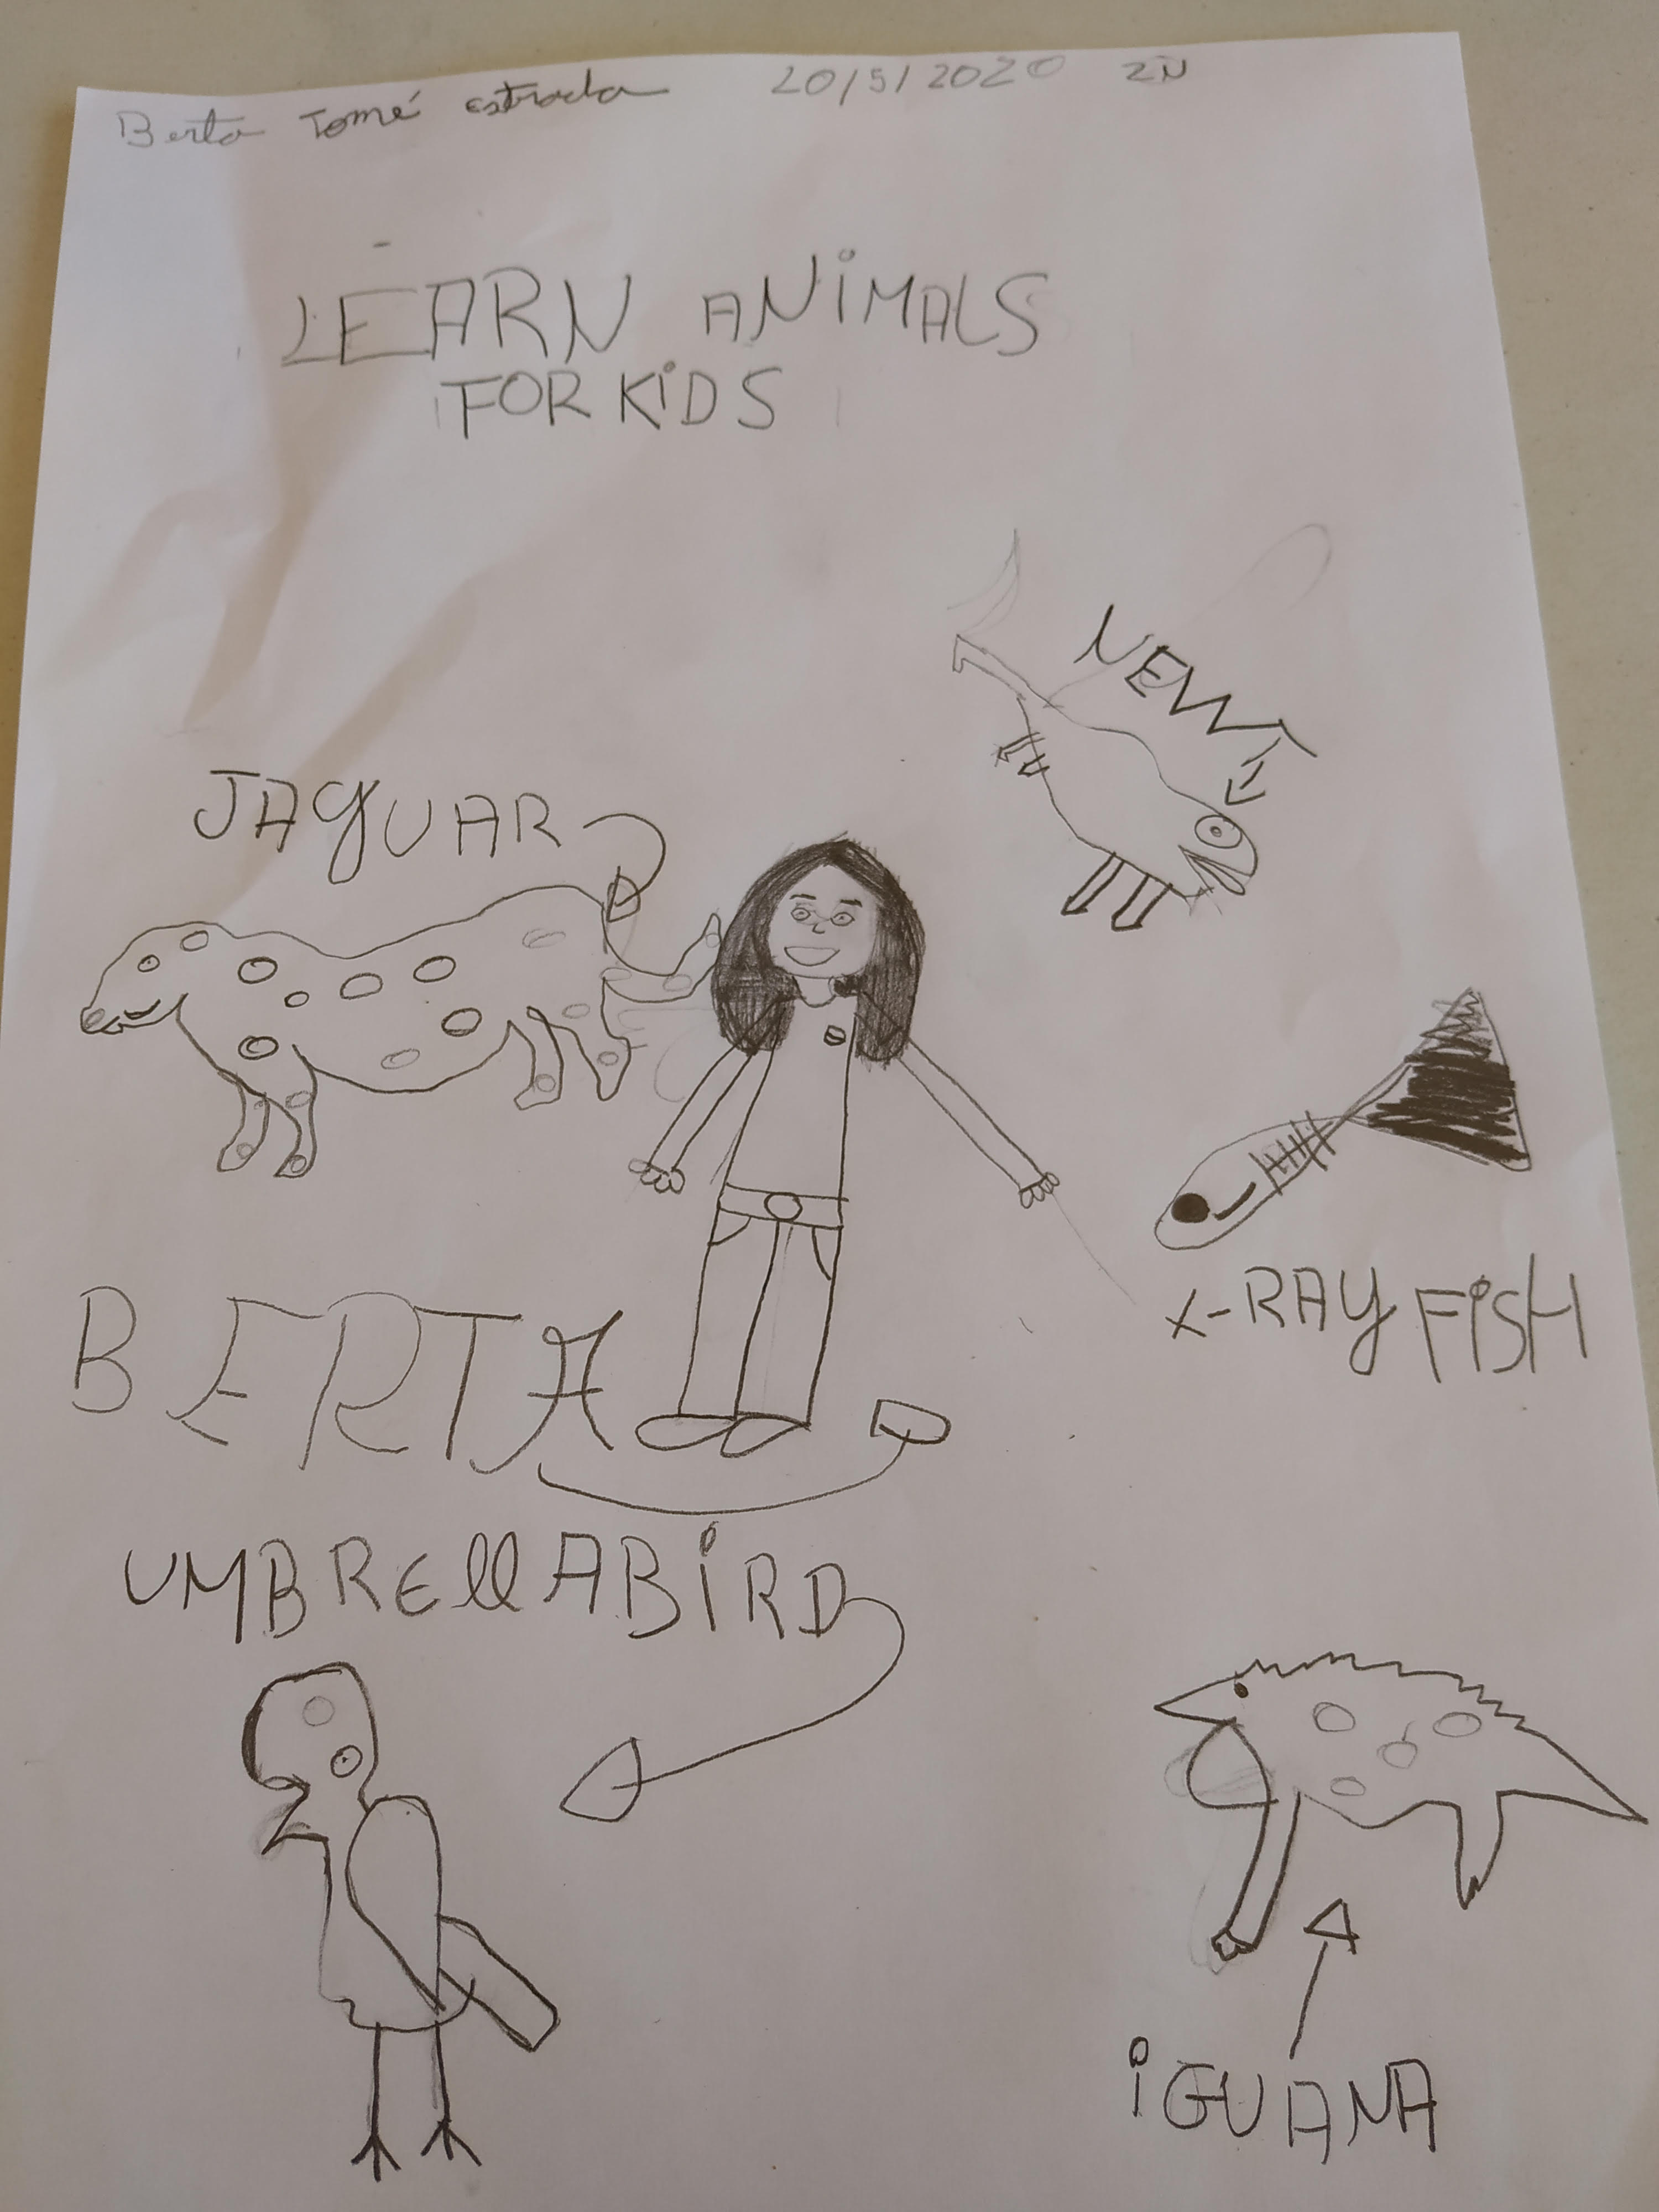 Berta Tomé estrada 20/5/2020 2N
LEARN ANiMALS
FOR KiDS
NEWT
JAguAR
X-RAY FiSH
BERTA
UMBREllABiRD
iGUANA